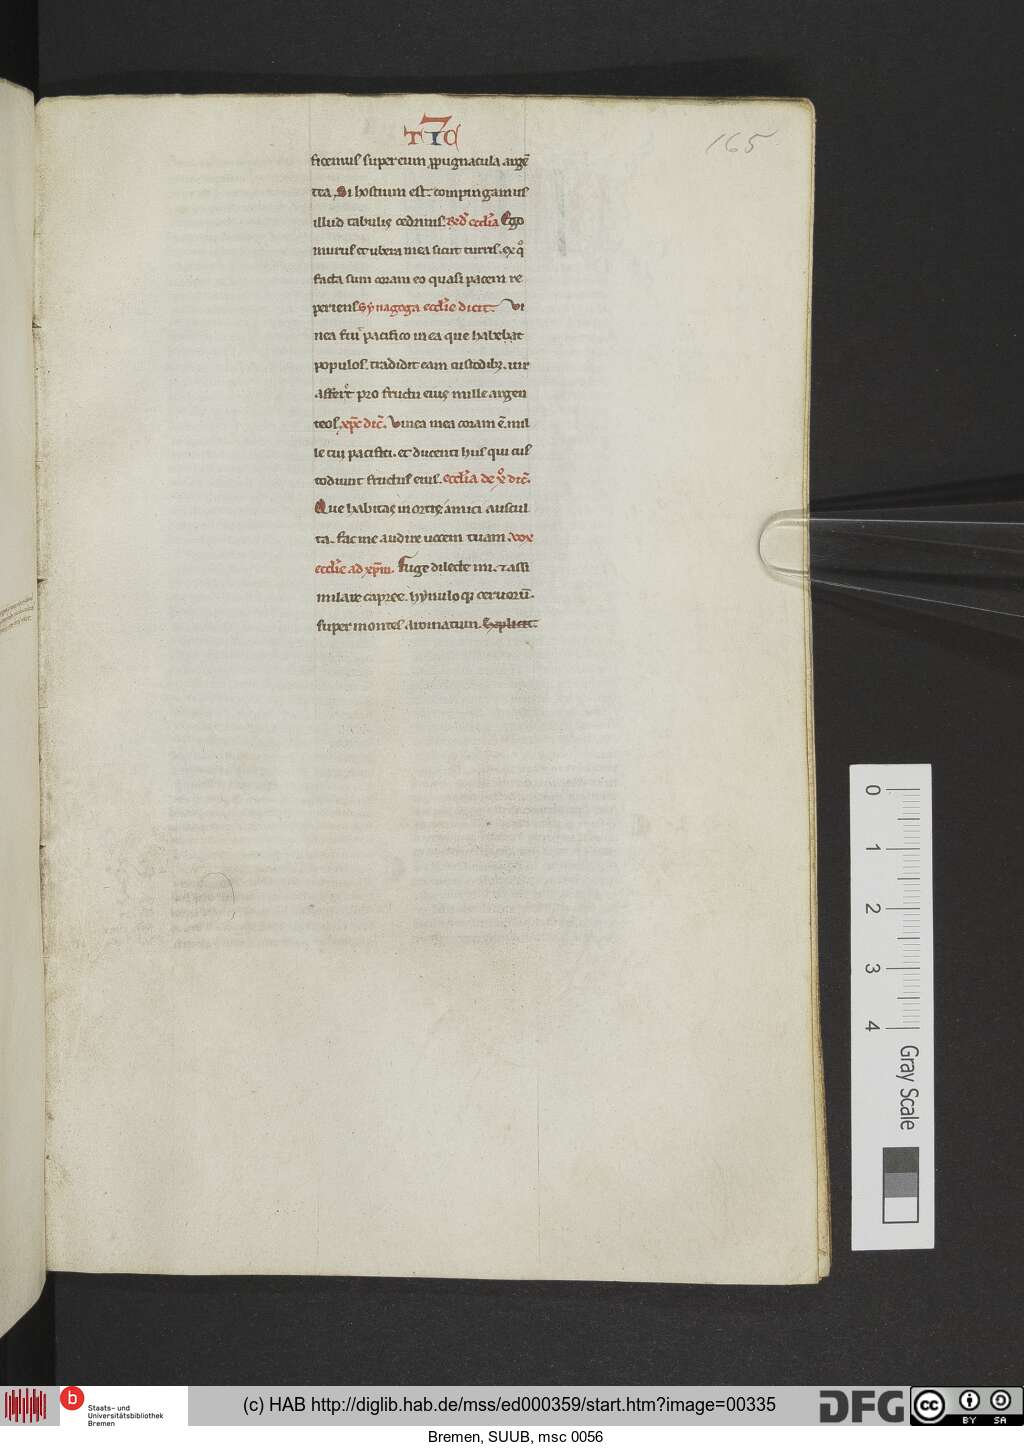 7
TIC
165
ficemus super eum ꝓpugnacula argē
tea, Si hostium est. compingamus
illud tabulis cedrinis. Rñd̄ eccl̄ia Ego
murus et ubera mea sicut turris. ex qͦ
facta sum coram eo quasi pacem re
periens Synagoga eccl̄ie dicit. Vi
nea fuit pacifico in ea que habebat
populos. tradidit eam custodibꝫ. uir
affert pro fructu eius mille argen
teos. xp̄c dic̄. Vinea mea coram ē. mil
le tui pacifici. et ducenti hiis qui cus
todiunt fructus eius. eccl̄ia de xͦ dic̄.
Que habitas in ortis amici auscul
ta. fac me audire uocem tuam. vox
eccl̄ie ad xp̄m. Fuge dilecte mi. ⁊ assi
milare capree. hynulo qꝫ ceruorū.
super montes aromatum. Explicit.
0
1
2
3
4
Gray Scale
b
Staats- und
Universitätsbibliothek
Bremen
(c) HAB http://diglib.hab.de/mss/ed000359/start.htm?image=00335
DFG
cc
BY SA
Bremen, SUUB, msc 0056